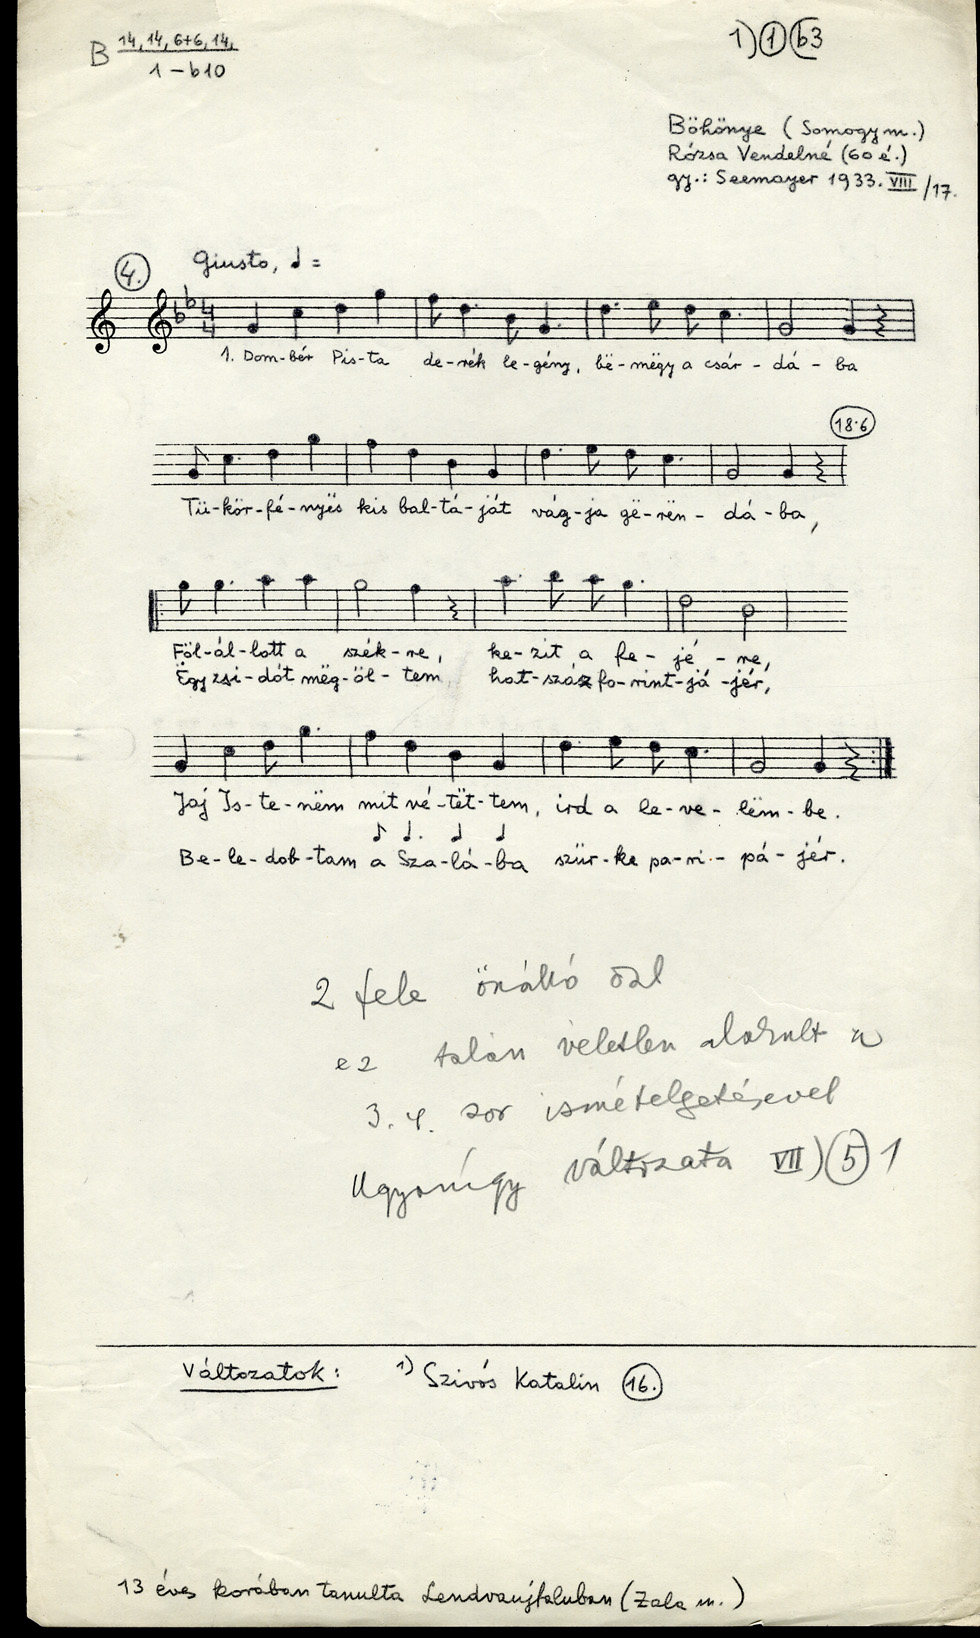 B 14, 14, 6+6, 14,
1 – b10
1) 1 b3
Böhönye (Somogy m.)
Rózsa Vendelné (60 é.)
gy.: Seemayer 1933. VIII/17.
4.
Giusto, ♩ =
1. Dom-bér Pis-ta de-rék le-gény, bë-mëgy a csár-dá-ba
18·6
Tü-kör-fé-nyës kis bal-tá-ját vág-ja gë-rën-dá-ba,
Föl-ál-lott a szék-re, ke-zit a fe-jé-re,
Ëgy zsi-dót mëg-öl-tem, hat-száz fo-rint-já-jér,
Jaj Is-te-nëm mit vé-tët-tem, ird a le-ve-lëm-be.
Be-le-dob-tam a Sza-lá-ba szür-ke pa-ri-pá-jér.
2 fele önálló
ez talán véletlen alakult a
3. 4. sor ismételgetésével
Ugyanígy változata VII) 5 1
Változatok: 1) Szivós Katalin 16.
13 éves korában tanulta Lendvaujfaluban (Zala m.)